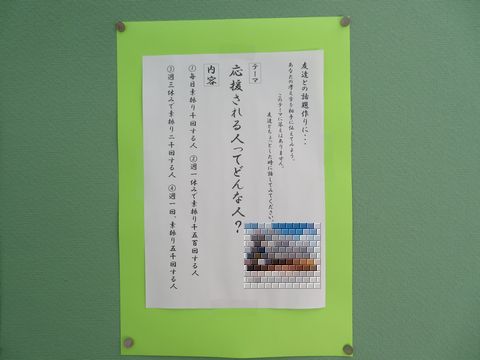 友達との話題作りに・・・
あなたの考えを相手に伝えてみよう。
このテーマに答えはありません。
友達とちょっとした時に話してみてください。
テーマ
応援される人ってどんな人？
内容
①毎日素振り千回する人
②週一休みで素振り千五百回する人
③週三休みで素振り二千回する人
④週一回、素振り五千回する人